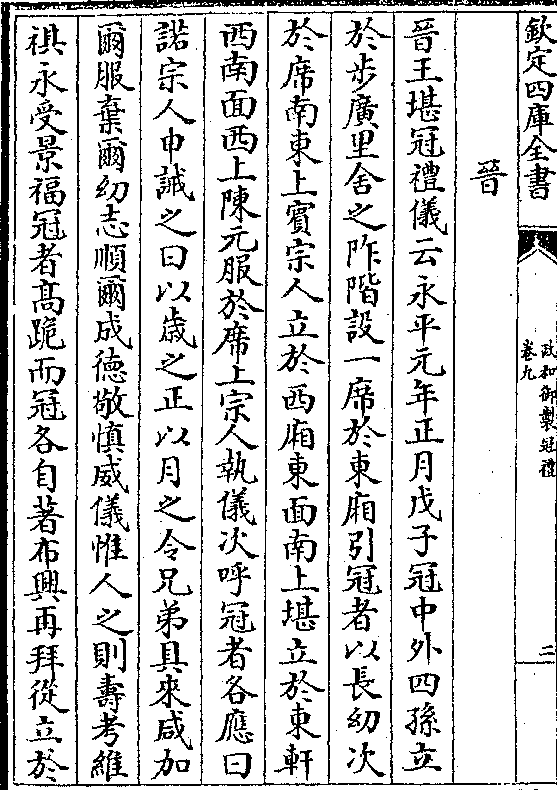 欽定四庫全書
政和御製冠禮
卷九
二
晉
晉王堪冠禮儀云永平元年正月戊子冠中外四孫立
於步廣里舍之阼階設一席於東廂引冠者以長幼次
於席南東上賓宗人立於西廂東面南上堪立於東軒
西南面西上陳元服於席上宗人執儀次呼冠者各應曰
諾宗人申誡之曰以歲之正以月之令兄弟具來咸加
爾服棄爾幼志順爾成德敬慎威儀惟人之則壽考維
祺永受景福冠者高跪而冠各自著布興再拜從立於